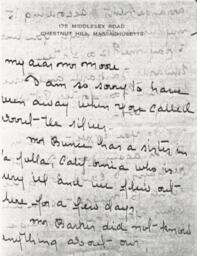 175 MIDDLESEX ROAD
CHESTNUT HILL, MASSACHUSETTS
my dear mr moore.
I am so sorry to have
been away when you called
about the silver.
mr. has a sister in
La Jolla, California who is
very ill and we flew out
here for a few days.
mr did not know
anything about our